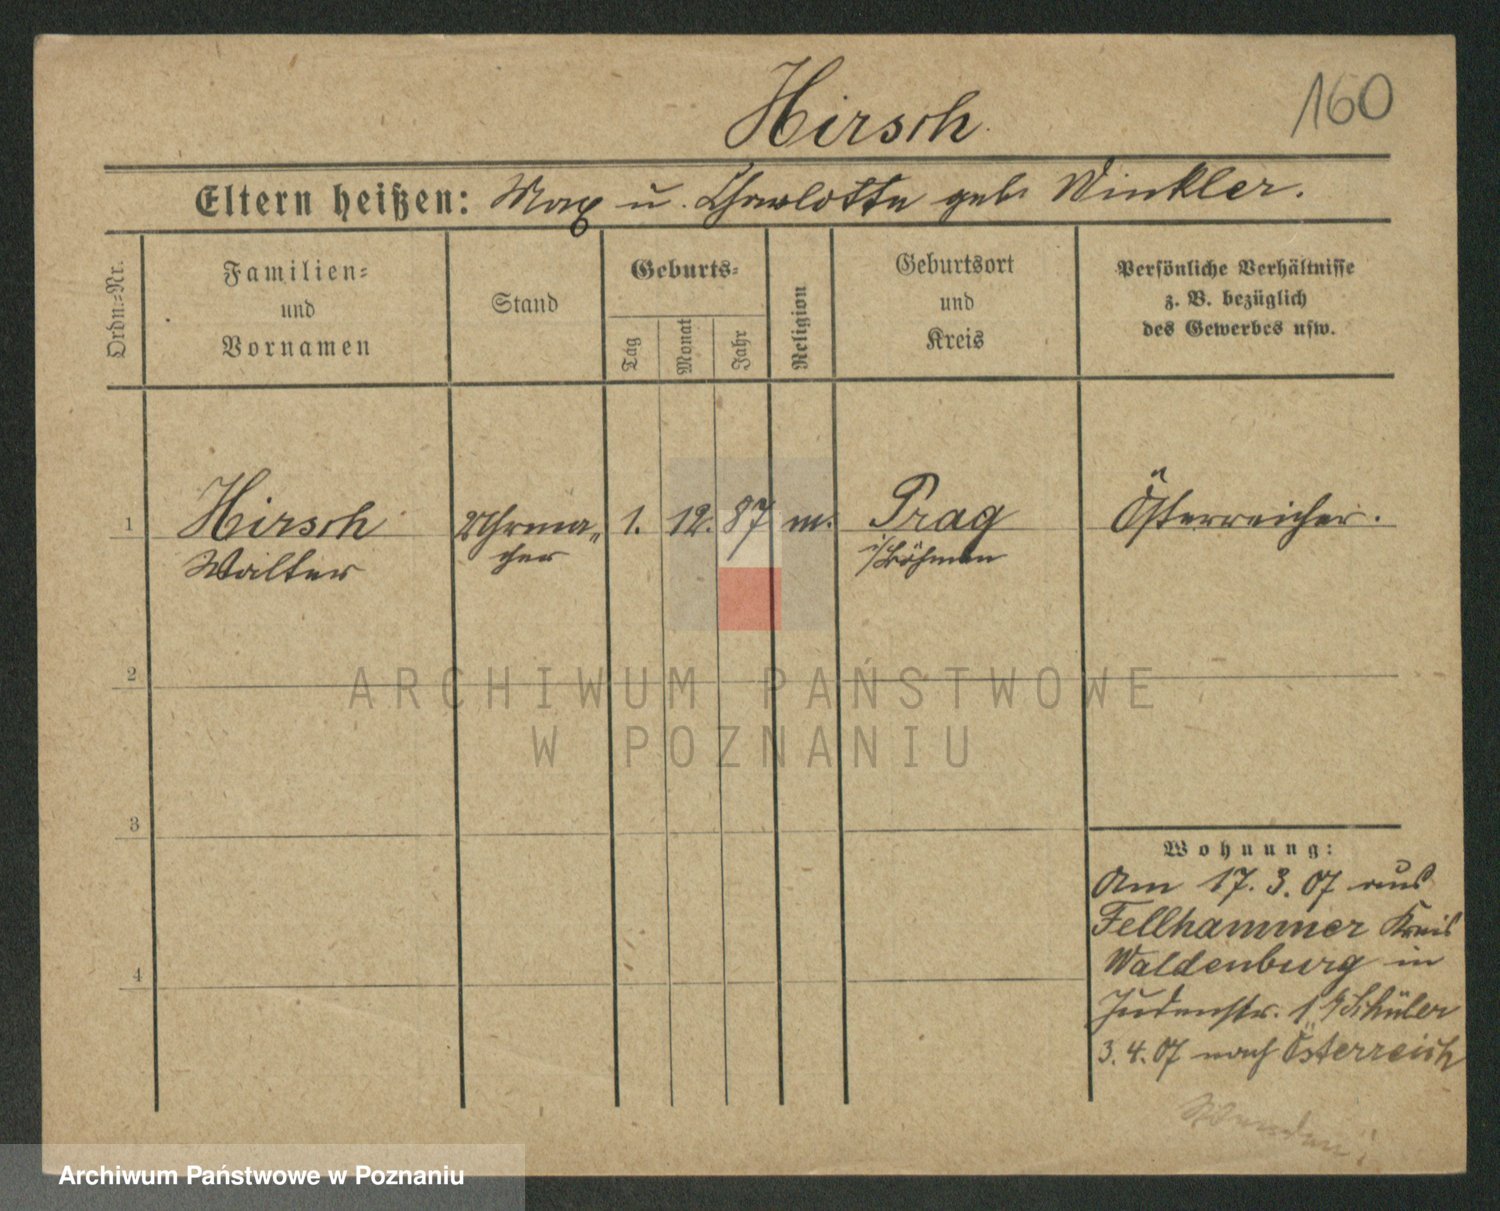 160
Hirsch
Eltern heißen: Max u. Charlotte geb. Winkler.
Ordn.=Nr.
Familien=
und
Vornamen
Stand
Geburts=
Tag
Monat
Jahr
Religion
Geburtsort
und
Kreis
Persönliche Verhältnisse
z. B. bezüglich
des Gewerbes usw.
1 Hirsch Uhrma„ 1. 12. 87 m. Prag Österreicher.
Walter cher i/Böhmen
2
ARCHIWUM PAŃSTWOWE
W POZNANIU
3
Wohnung:
Am 17. 3. 07 aus
Fellhammer Kreis
Waldenburg in
Judenstr. 1 b/Schüler
3. 4. 07 nach Österreich
4
Wenden!
Archiwum Państwowe w Poznaniu